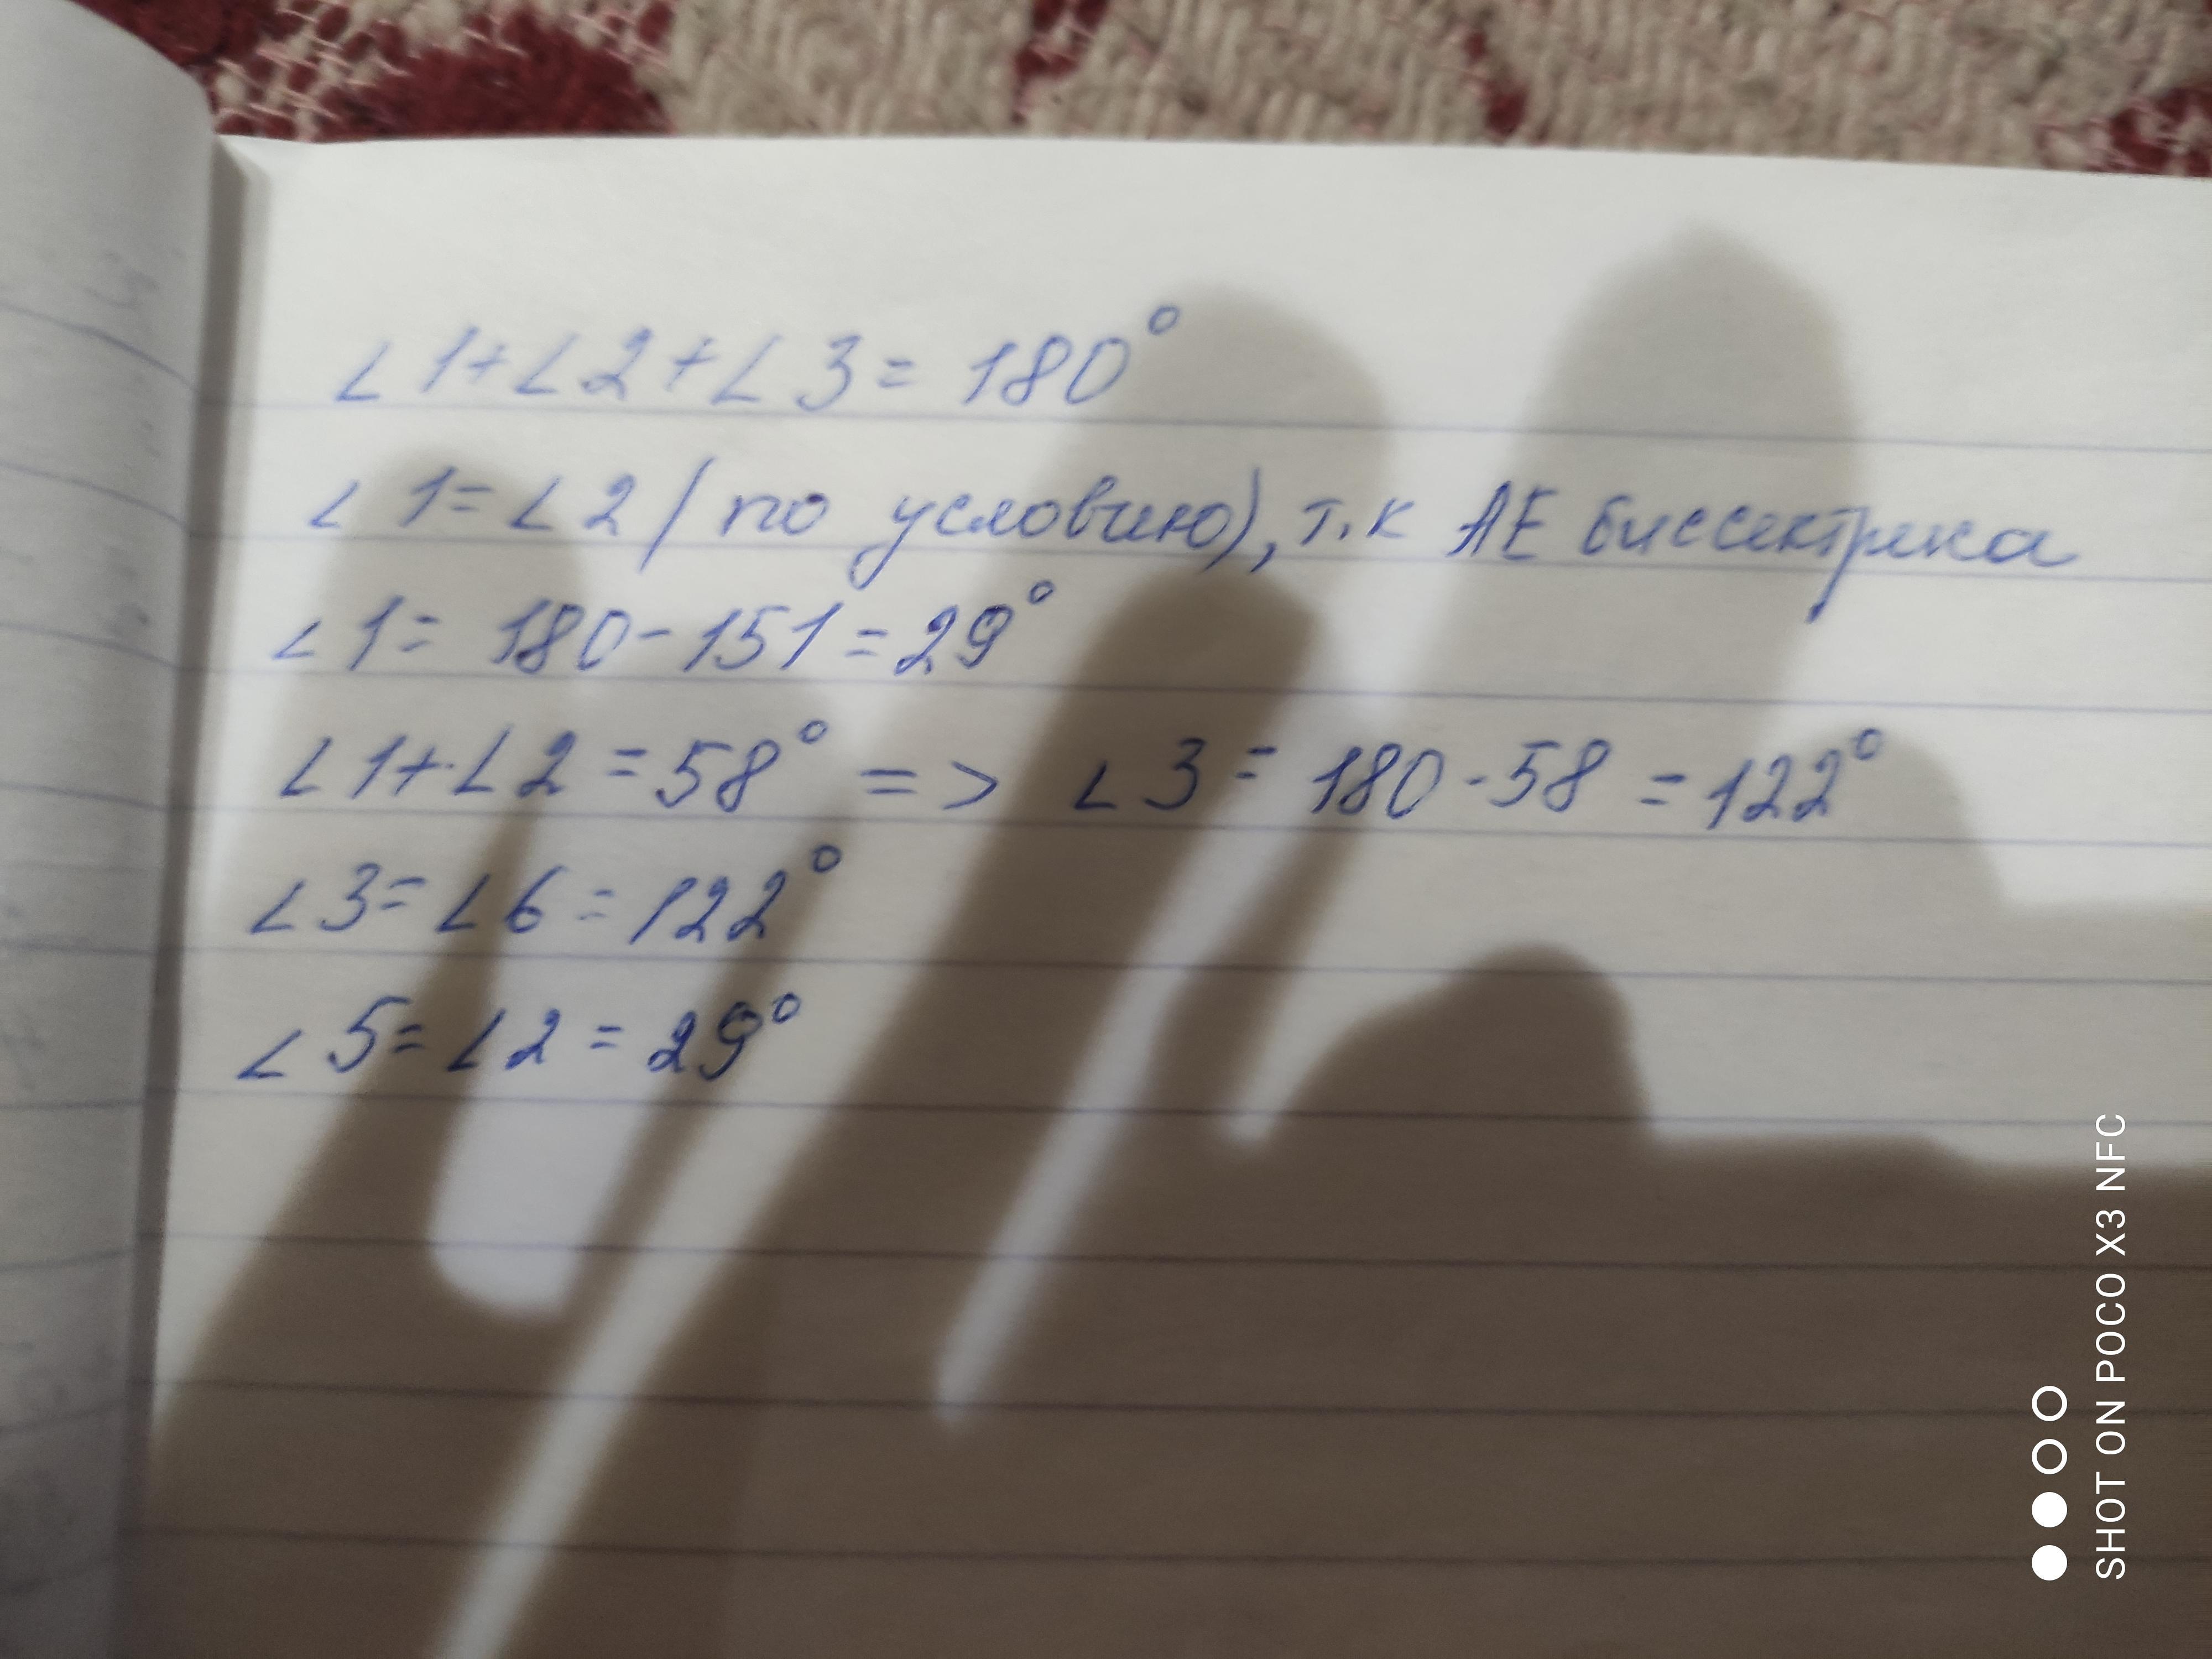 ∠1+∠2+∠3=180°
∠1=∠2(по условию), т.к АЕ биссектриса
∠1=180-151=29°
∠1+∠2=58° => ∠3=180-58=122°
∠3=∠6=122°
∠5=∠2=29°
SHOT ON POCO X3 NFC